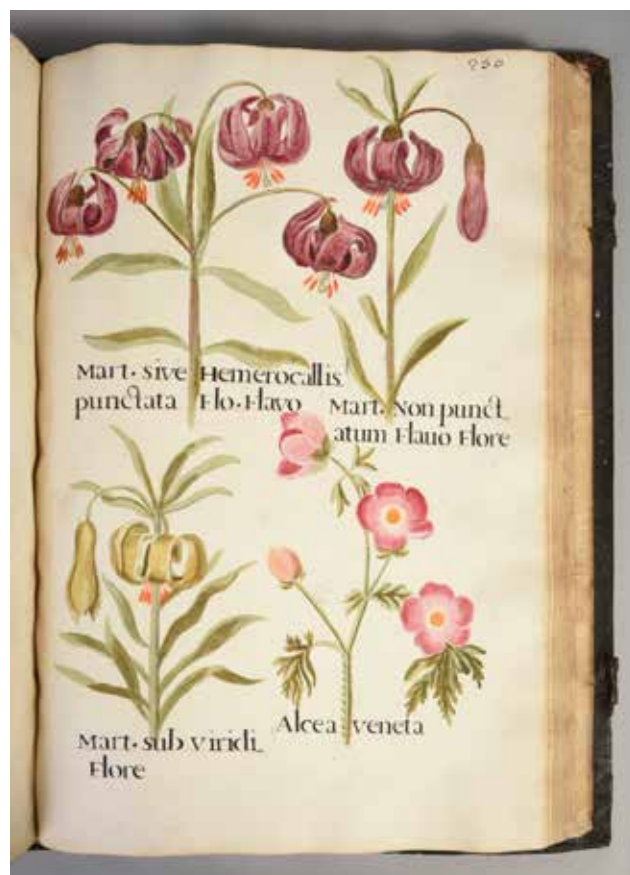 230
Mart. sive Hemerocallis
punctata Flo. Flavo
Mart. Non punct
atum Flauo Flore
Mart. sub viridi
Flore
Alcea veneta